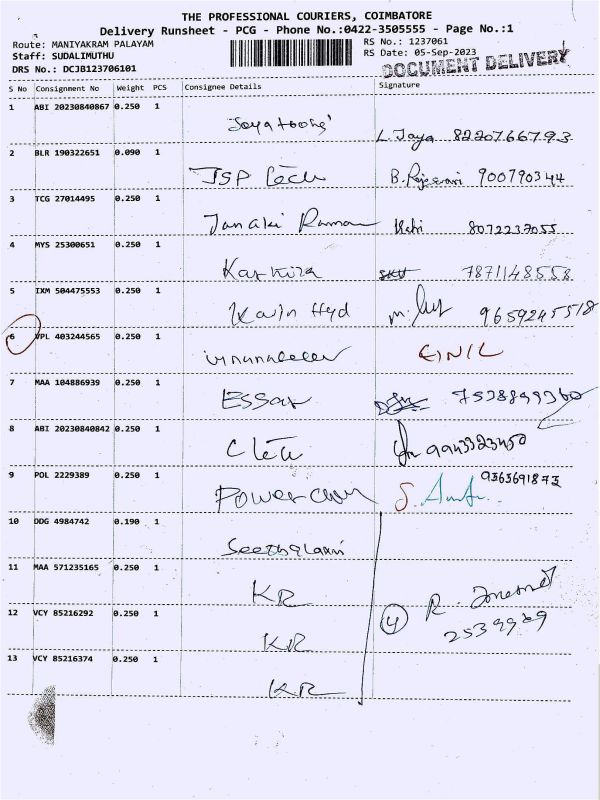 THE PROFESSIONAL COURIERS, COIMBATORE
Delivery Runsheet - PCG - Phone No.:0422-3505555 - Page No.:1
Route: MANIYAKRAM PALAYAM
RS No.: 1237061
Staff: SUDALIMUTHU
RS Date: 05-Sep-2023
DRS No.: DCJB123706101
DOCUMENT DELIVERY
S No Consignment No Weight PCS Consignee Details Signature
1 ABI 20230840867 0.250 1
L. Jaya 8220766793
2 BLR 190322651 0.090 1
JSP Tech B. Rajeswari 900790344
3 TCG 27014495 0.250 1
Janaki Raman 8072237055
4 MYS 25300651 0.250 1
7871148558
5 IXM 504475553 0.250 1
9659245518
6 VPL 403244565 0.250 1
7 MAA 104886939 0.250 1
Essar 7528899360
8 ABI 20230840842 0.250 1
9943323450
9 POL 2229389 0.250 1
9363691873
10 DDG 4984742 0.190 1
Seethalaxmi
11 MAA 571235165 0.250 1
KR
12 VCY 85216292 0.250 1
KR
4 R.
2539989
13 VCY 85216374 0.250 1
KR